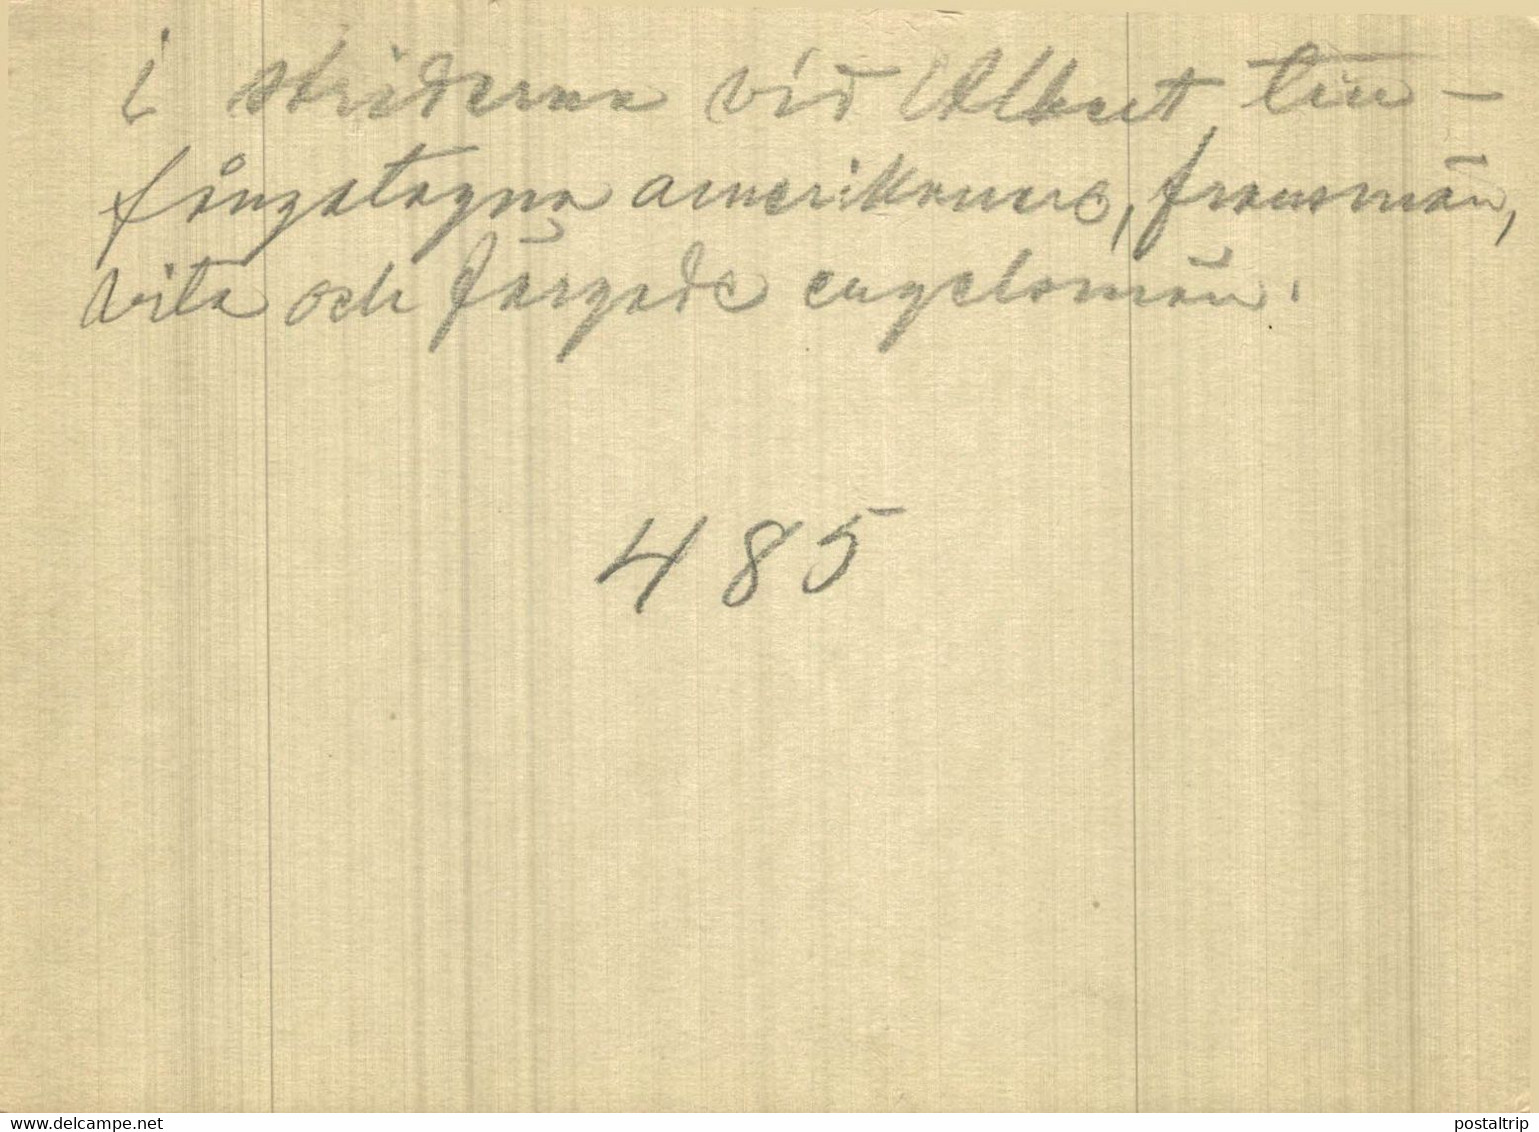 i striderna vid Albert till-
fångatagna amerikanare, fransmän,
vita och färgade engelsmän.
485
www.delcampe.net
postaltrip